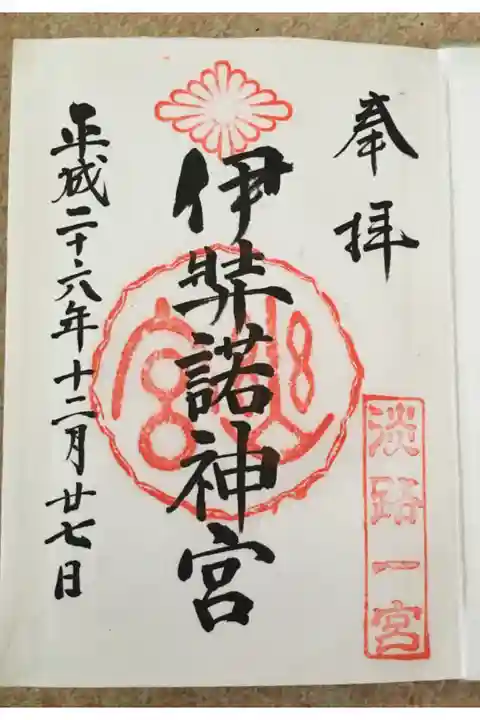 奉拝
淡路一宮
伊弉諾神宮
平成二十六年十二月廿七日